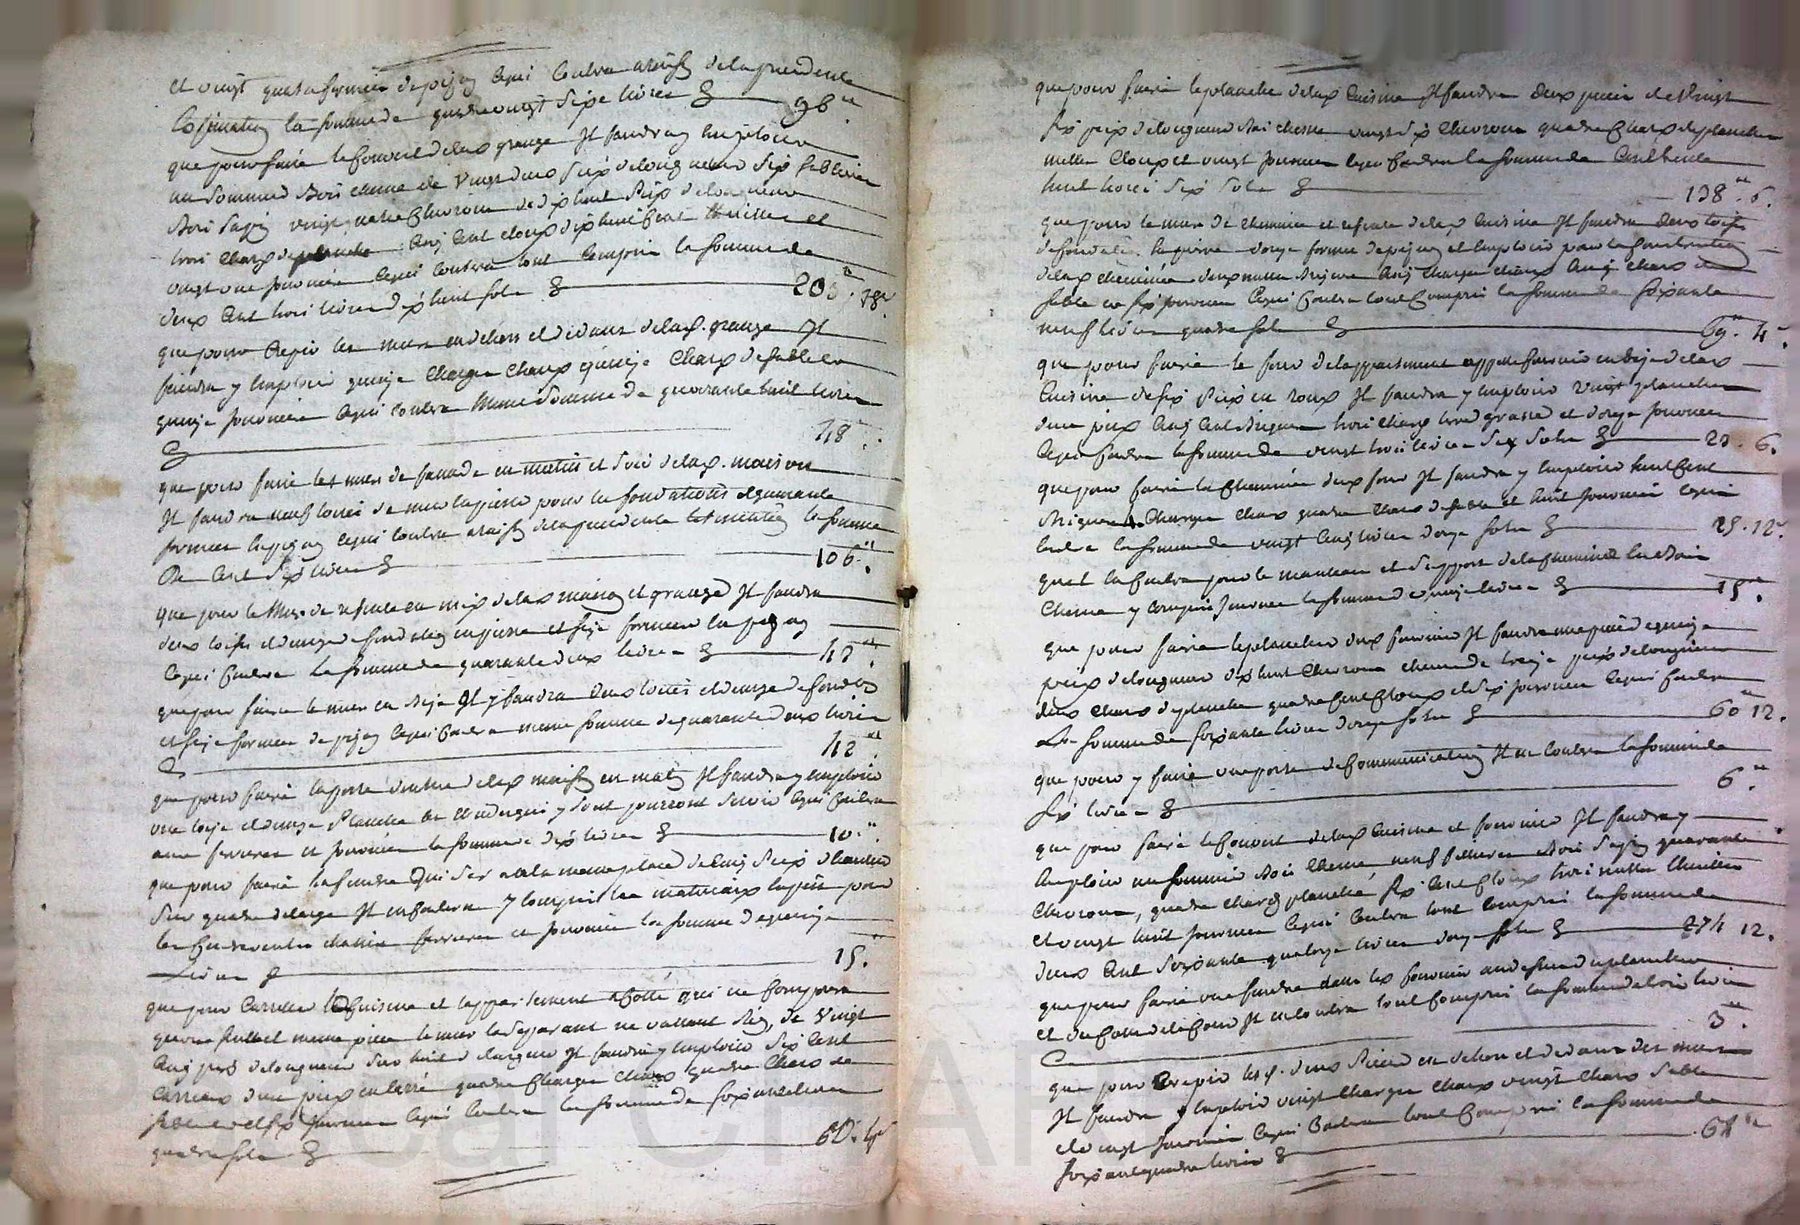 et vingt quatre formées de pizay lequel coutera a raison de la précedente
Estimation la somme de quatre vingt seize livres 96.
que pour faire le couvert de lad. grange Il faudra employer
un sommier Bois chesne de vingt deux pieds de longueur six filieres
Bois sapin vingt quatre chevrons de dix huit pieds de longueur
trois chars de planche cinq cent cloux dix huit cent thuilles et
vingt une journées lequel coutera tout compris la somme de
deux cent trois livres dix huit sols 203. 18.
que pour crepir les murs en dehors et dedans de lad. grange Il
faudra y employer quinze charges chaux quinze chars de sable et
quinze journées lequel coutera meme somme de quarante huit livres
48.
que pour faire les murs de façade en matin et soir de lad. maison
Il faudra neuf toises de mur en pierre pour les fondations et quarante
formées en pizay lequel coutera a raison de la precedente estimation la somme
De cent six livres 106.
que pour le mur de refente en mizay de lad. maison et grange Il faudra
deux toises et demy de fondation en pierre et seize formées en pizay
lequel coutera la somme de quarante deux livres 42.
que pour faire le mur en bize Il y faudra deux toises et demy de fondation
et seize formées de pizay lequel coutera meme somme de quarante deux livres
42.
que pour faire la porte d'entrée de lad. maison en matin Il faudra y employer
une toise et demy planche
avec ferrures et journées la somme de dix livres 10.
que pour faire la fenetre qui sera a la meme place de cinq pieds d'hauteur
sur quatre de large Il en coutera y compris les materiaux
les contrevents chassis ferrures et journées la somme de quinze
Livres 15.
que pour carreler la Cuisine et l'appartement a côté qui ne compose
qu'une seule et meme piece le mur la separant ne vallant rien, de vingt
cinq pieds de longueur sur huit de largeur Il faudra y employer six cent
carreaux d'un pied en carré quatre charges chaux quatre chars de
sable et six journées lequel coutera la somme de soixante livres
quatre sols 60. 4
que pour faire le planché de lad. cuisine Il faudra deux pieces de vingt
six pieds de longueur bois chesne vingt six chevrons quatre chars de planches
mille cloux et vingt journées lequel coutera la somme de cent trente
huit livres six sols 138. 6.
que pour le mur de cheminée et refente de lad. cuisine Il faudra deux toises
de fondation en pierre douze formées de pizay et employer pour la construction
de lad. cheminée deux mille briques cinq charges chaux cinq chars de
sable et six journées lequel coutera tout compris la somme de soixante
neuf livres quatre sols 69. 4.
que pour faire le four de l'appartement appellé fournier en bize de lad.
Cuisine de six pieds en rond Il faudra y employer vingt planches
d'un pied cinq cent briques trois chars terre grasse et douze journées
lequel coutera la somme de vingt trois livres six sols 23. 6.
que pour faire la cheminée dud. four Il faudra y employer huit cent
briques 4 charges chaux quatre chars de sable et huit journées lequel
coutera la somme de vingt cinq livres douze sols 25. 12.
que la coutera pour le manteau et support de la cheminée en bois
chesne y compris journées la somme de quinze livres 15.
que pour faire le plancher dud. fournier Il faudra une piece de quinze
pieds de longueur dix huit chevrons chesne de treize pieds de longueur
deux chars de planches quatre cent cloux et dix journées lequel coutera
La somme de soixante livres douze sols 60 12.
que pour y faire une porte de communication Il en coutera la somme de
six livres 6.
que pour faire le couvert de lad. cuisine et fournier Il faudra y
employer un sommier bois chesne neuf filieres bois sapin quarante
chevrons, quatre chars planche, six cent cloux trois mille thuilles
et vingt huit journées lequel coutera tout compris la somme de
deux cent soixante quatorze livres douze sols 274 12.
que pour faire une fenetre dans led. fournier au dessus du plancher
et du côté de la cour Il en coutera tout compris la somme de trois livres
3.
que pour crepir lesd. deux pieces en dehors et dedans des murs
Il faudra y employer vingt charges chaux vingt chars sable
et vingt journées lequel coutera tout compris la somme de
soixante quatre livres 64.